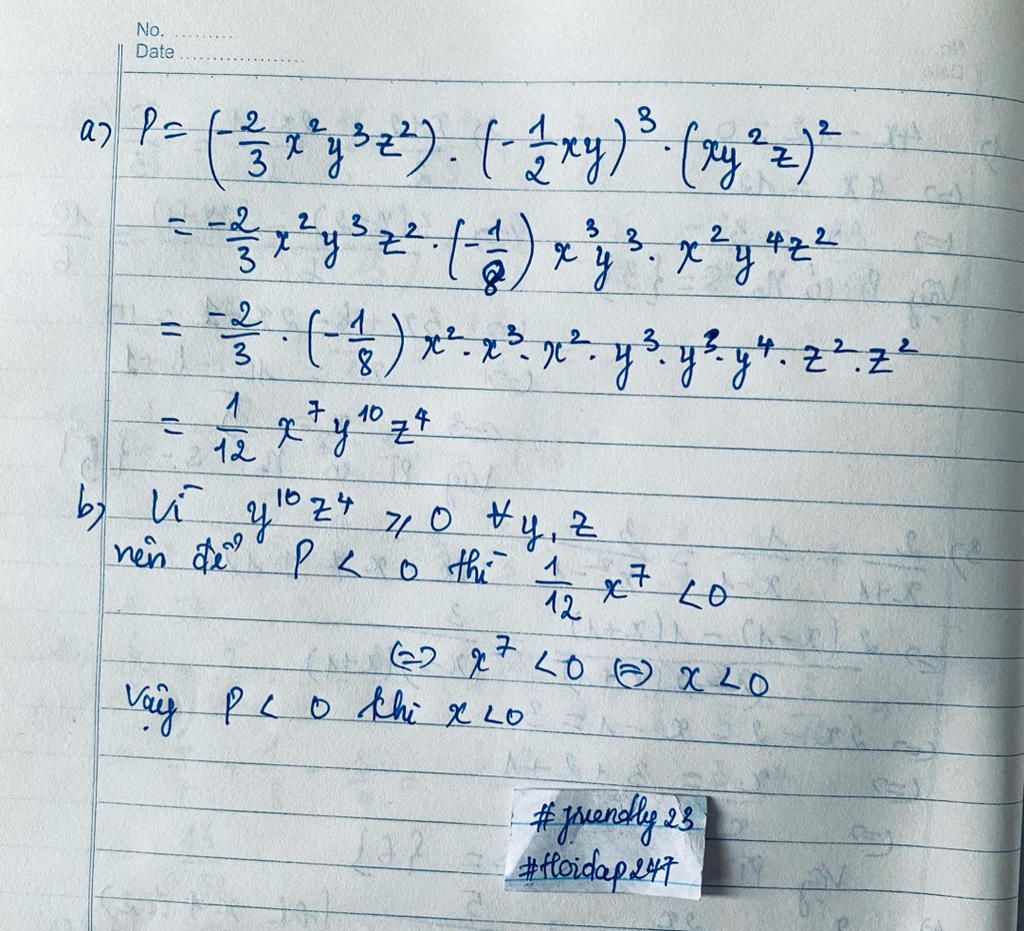 No. .........
Date ..................
a) P = (-2/3 x²y³z²) . (-1/2 xy)³ . (xy²z)²
= -2/3 x²y³z² . (-1/8) x³y³ . x²y⁴z²
= -2/3 . (-1/8) x² . x³ . x² . y³ . y³ . y⁴ . z² . z²
= 1/12 x⁷y¹⁰z⁴
b) Vì y¹⁰z⁴ ⩾ 0 ∀y, z
nên để P < 0 thì 1/12 x⁷ < 0
⇔ x⁷ < 0 ⇔ x < 0
Vậy P < 0 khi x < 0
#friendly23
#Hoidap247